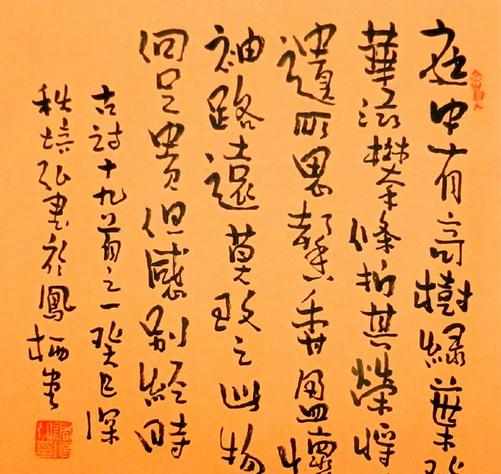 庭中有奇樹綠葉發
華滋攀條折其榮將
遺所思馨香盈懷
袖路遠莫致之此物
何足貴但感別經時
古詩十九首之一癸巳深
秋培弘書於鳳栖堂